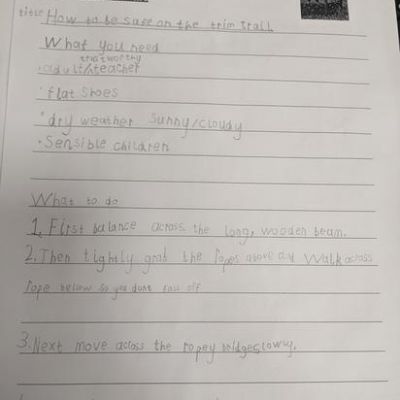 title How to be safe on the trim trail
What you need
thatworthy
· adult/teacher
· flat shoes
· dry weather sunny/cloudy
· Sensible children
What to do
1. First balance across the long, wooden beam.
2. Then tightly grab the ropes above and walk across
rope below so you dont fall off
3. Next move across the ropey bridge slowly.